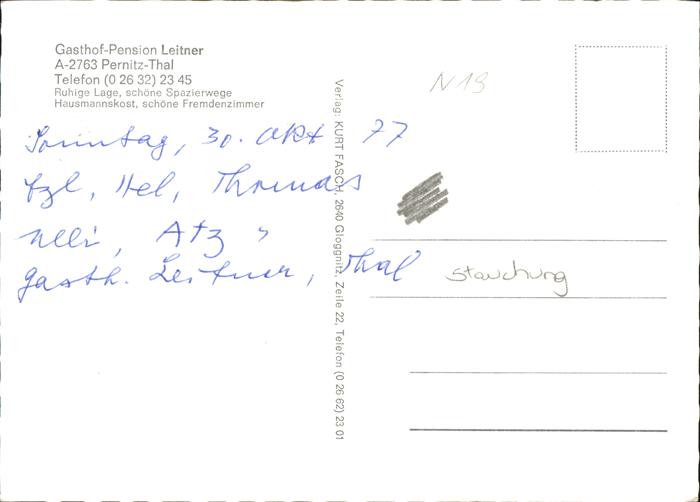 Gasthof-Pension Leitner
A-2763 Pernitz-Thal
Telefon (0 26 32) 23 45
Ruhige Lage, schöne Spazierwege
Hausmannskost, schöne Fremdenzimmer
Sonntag, 30. Okt 77
Hel, Thomas
Atz
Gasth. Leitner, Thal
Verlag: KURT FASCH, 2640 Gloggnitz, Zeile 22, Telefon (0 26 62) 23 01
N19
Stauchung